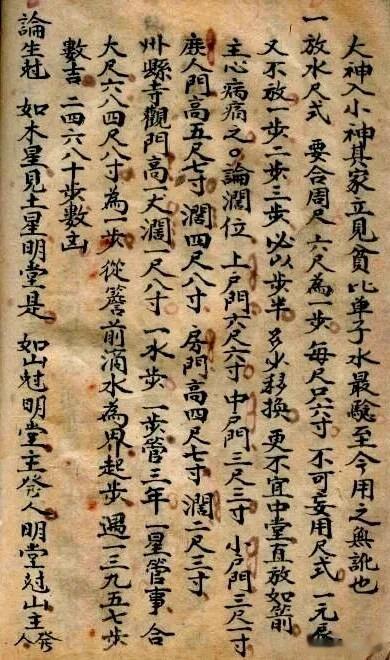 大神入小神其家立見貧比單子水最驗至今用之無訛也
一放水尺式 要合周尺 六尺為一步 每尺只六寸 不可妄用尺式 一元辰
又不放一步二步三步 必以步半 多少移換 更不宜中堂直放如箭
主心病痛之。論濶位 上戶門六尺六寸 中戶門三尺三寸 小戶門三尺一寸
庶人門高五尺七寸 濶四尺八寸 房門高四尺七寸 濶二尺三寸
州縣寺觀門高一丈 濶一尺八寸 一水步 一步管三年 一星管事 合
大尺六八四尺八寸為一步 從簷前滴水為界起步 遇一三九五七步
數吉 二四六八十步數凶
論生尅 如木星見土星明堂是 如山尅明堂主發人 明堂尅山主發人